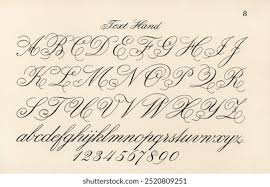 8
Text Hand
A B C D E F G H I J
K L M N O P Q R
S T U V W X Y Z
abcdefghijklmnopqrstuvwxyz
1234567890
shutterstock.com · 2520809251